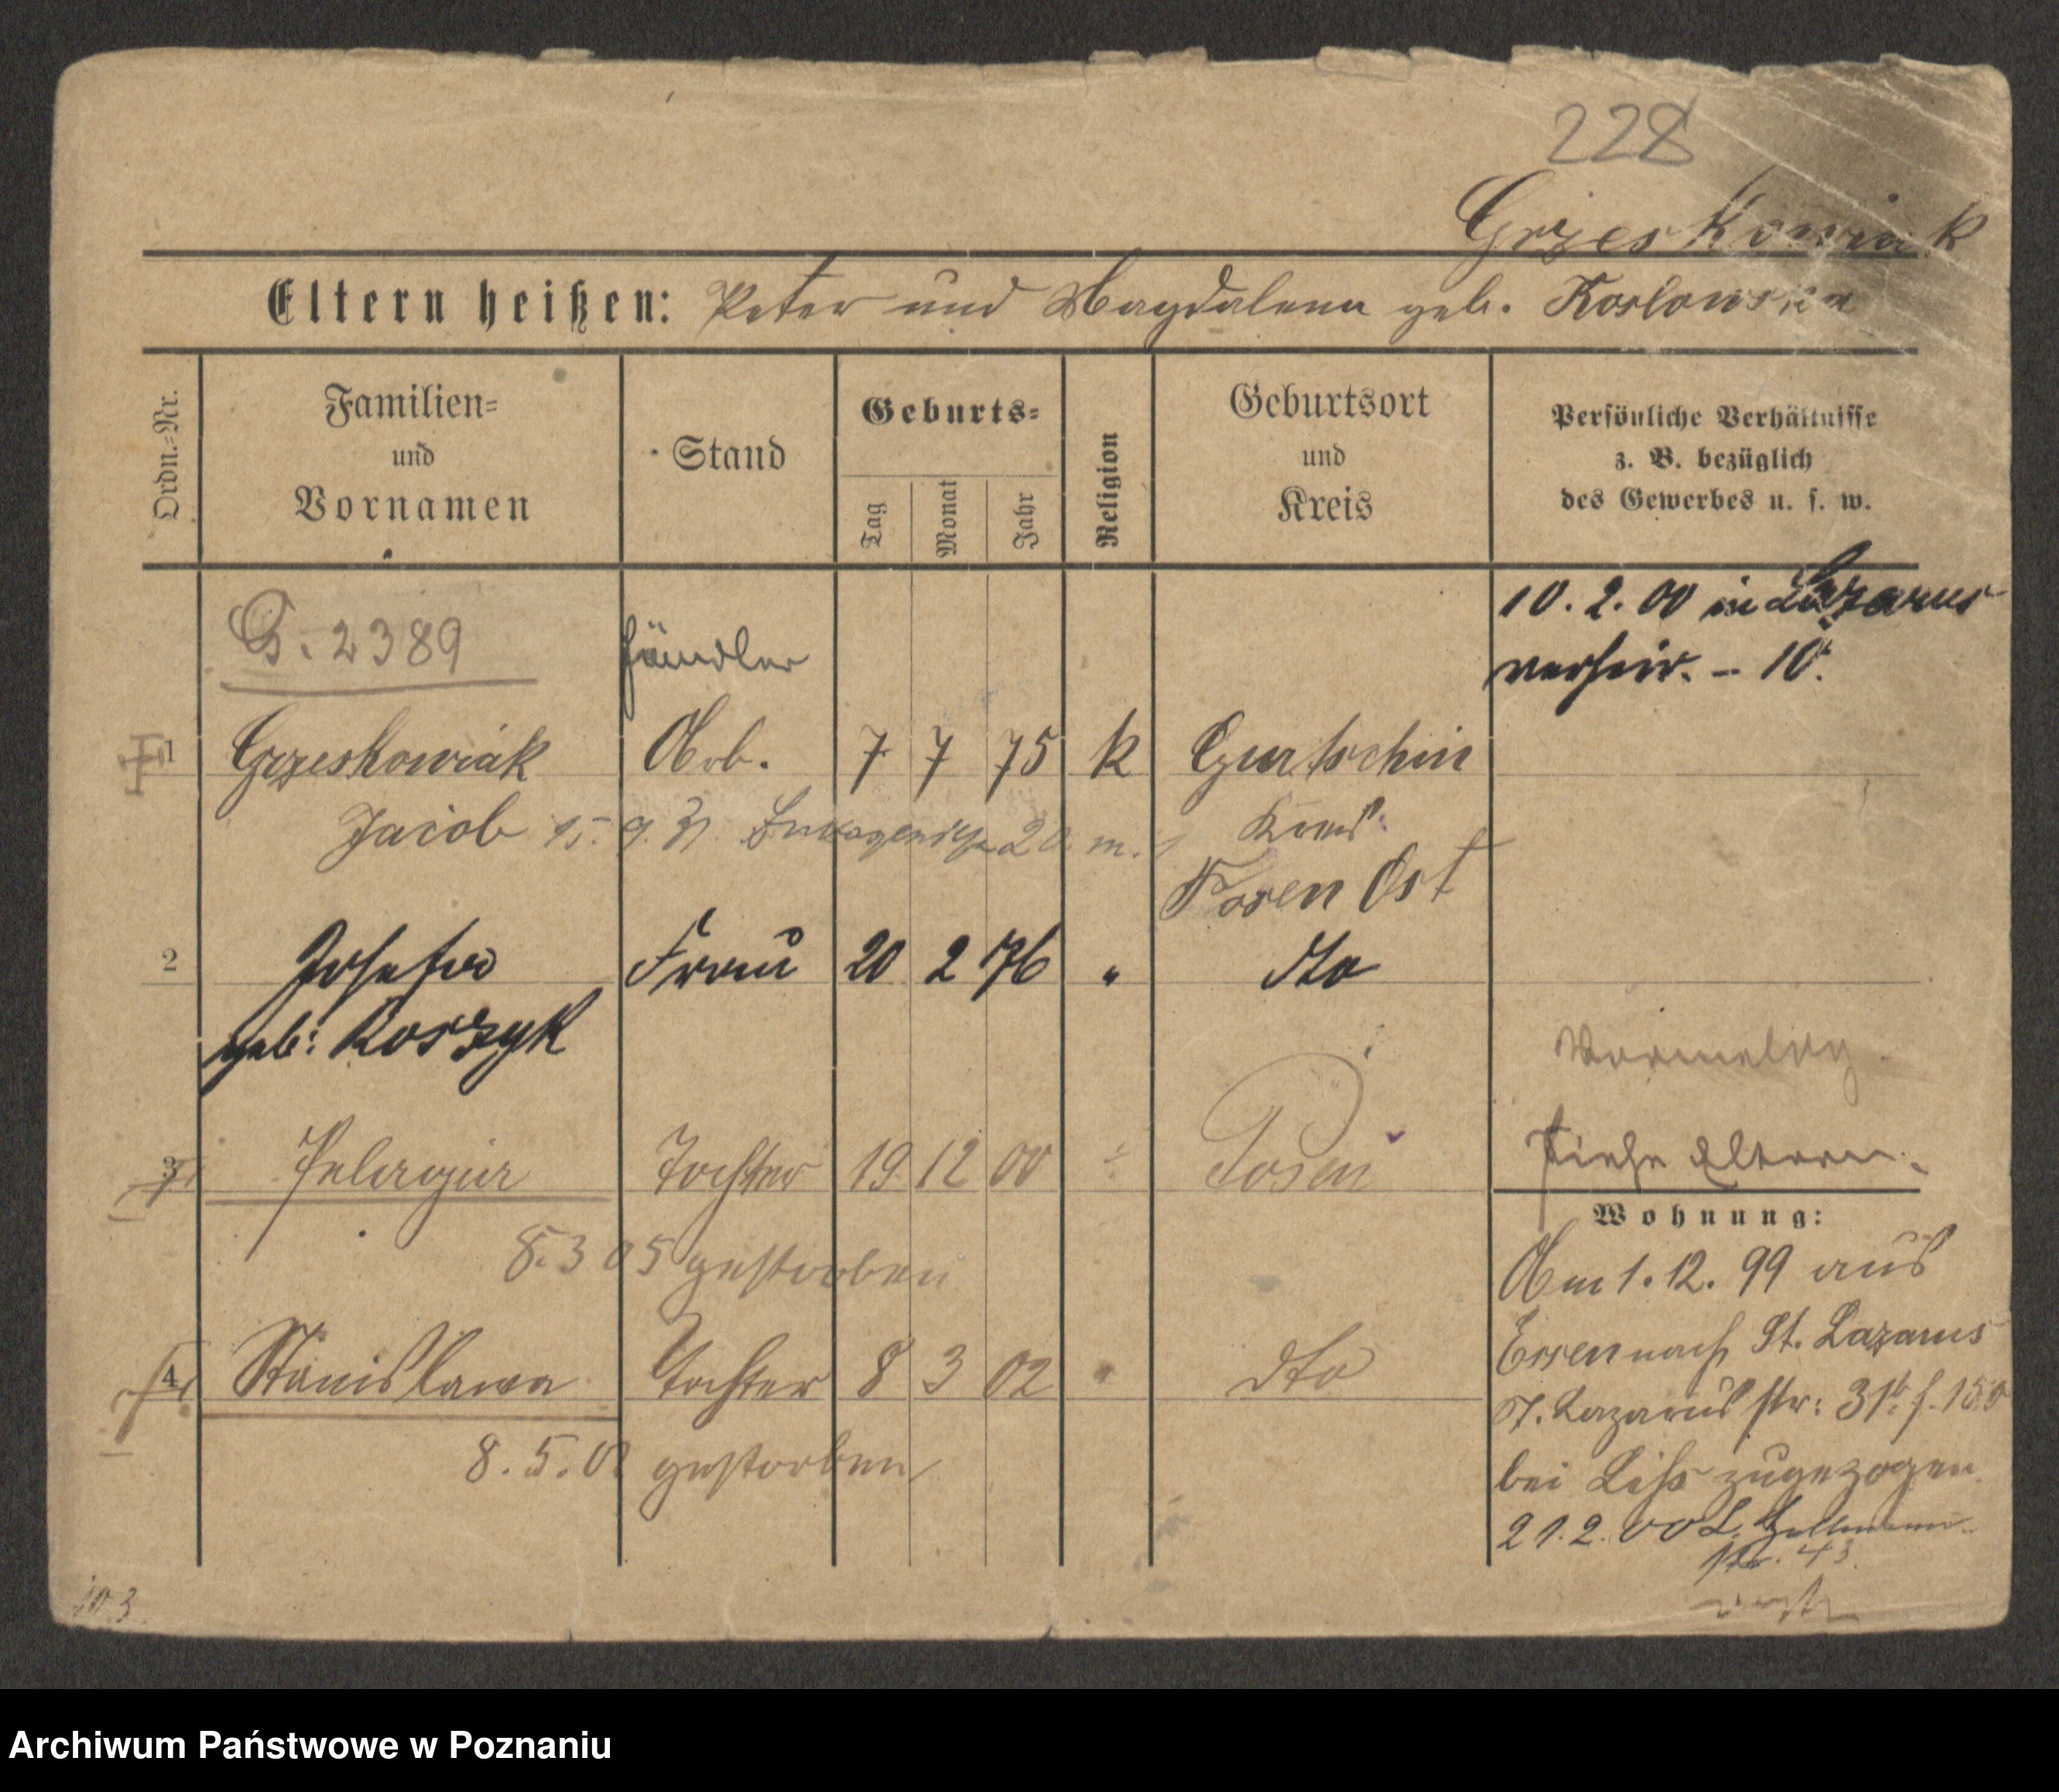 228
Grzeskowiak
Eltern heißen: Peter und Magdalena geb. Koslowska
Ordn.=Nr.
Familien=
und
Vornamen
Stand
Geburts=
Tag
Monat
Jahr
Religion
Geburtsort
und
Kreis
Persönliche Verhältnisse
z. B. bezüglich
des Gewerbes u. s. w.
G. 2389
händler
10. 2. 00 in Lazarus
verheir. – 10.
1 Grzeskowiak Arb. 7 7 75 k Gurtschin
Jacob 15. 9. 31 20 m. Kreis
Posen Ost
2 Josefa Frau 20 2 76 " dto
geb: Koszyk
3 Pelagia Tochter 19 12 00 Posen
Siehe Eltern.
Wohnung:
8. 3 05 gestorben
Am 1. 12. 99 aus
Essen nach St. Lazarus
4 Stanislawa Tochter 8 3 02 " dto
St. Lazarus str: 31
8. 5. 0 gestorben
bei Liss zugezogen
21. 2. 00 L.
Str. 43
103
Archiwum Państwowe w Poznaniu